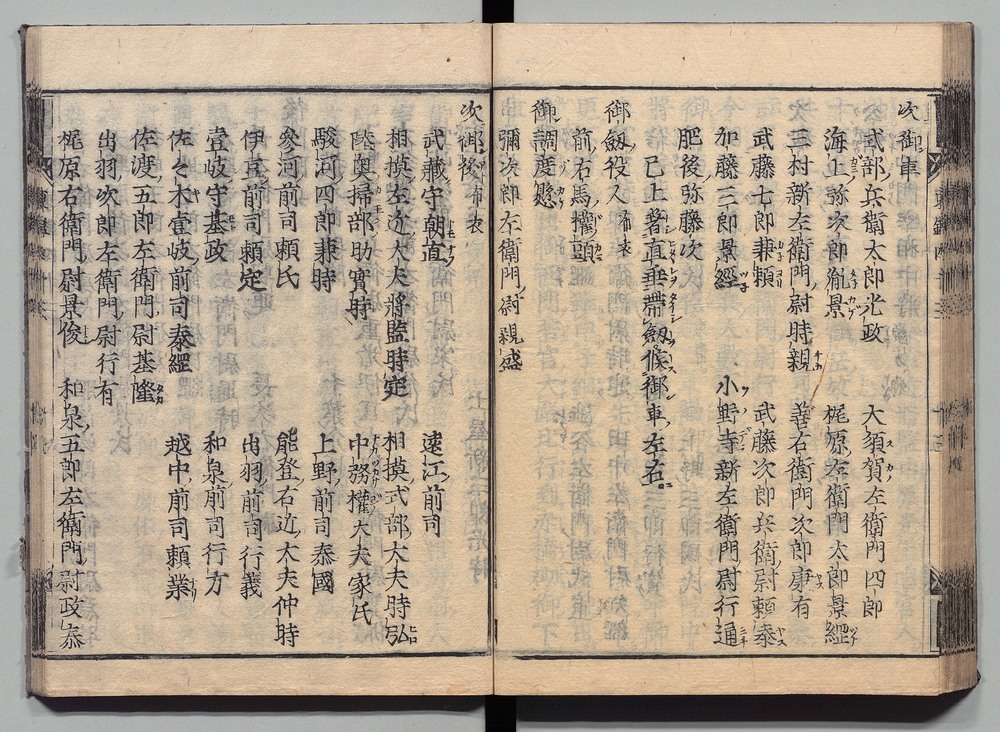 次御車
武部兵衛太郎光政　大須賀左衛門四郎
海上弥次郎胤景　梶原左衛門太郎景經
三村新左衛門尉時親　善右衛門次郎康有
武藤七郎兼頼　武藤次郎兵衛尉頼泰
加藤三郎景經　小野寺新左衛門尉行通
肥後弥藤次
已上著直垂帶劔候御車左右
御劔役人布衣
前右馬權頭
御調度懸
彌次郎左衛門尉親盛
次御後布衣
武藏守朝直　遠江前司
相摸左近大夫將監時定　相摸式部大夫時弘
陸奥掃部助實時　中務權大夫家氏
駿河四郎兼時　上野前司泰國
參河前司頼氏　能登右近大夫仲時
伊豆前司頼定　出羽前司行義
壹岐守基政　和泉前司行方
佐々木壹岐前司泰經　越中前司頼業
佐渡五郎左衛門尉基隆
出羽次郎左衛門尉行有
梶原右衛門尉景俊　和泉五郎左衛門尉政泰